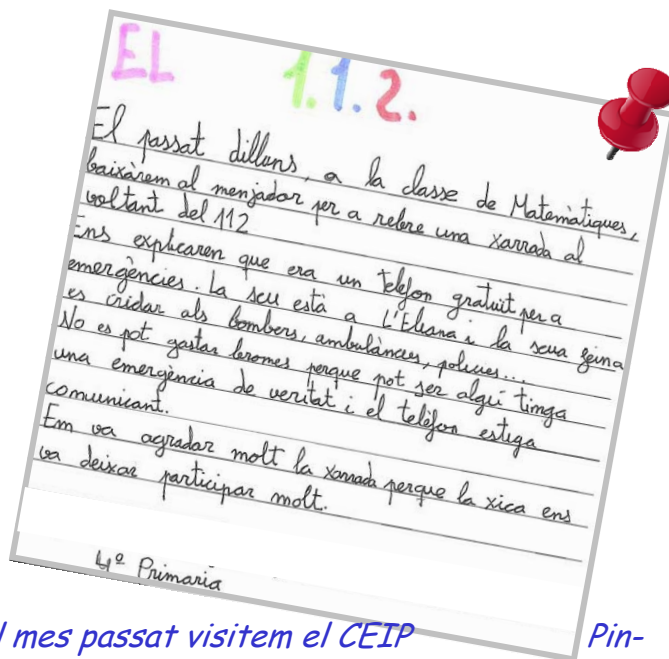 EL 1.1.2.
El passat dilluns, a la classe de Matemàtiques,
baixàrem al menjador per a rebre una xarrada al
voltant del 112
Ens explicaren que era un telèfon gratuït per a
emergències. La seu està a L'Eliana i la seua feina
es cridar als bombers, ambulàncies, policies...
No es pot gastar bromes perque pot ser algú tinga
una emergència de veritat i el telèfon estiga
comunicant.
Em va agradar molt la xarrada perque la xica ens
va deixar participar molt.
4º Primaria
l mes passat visitem el CEIP Pin-